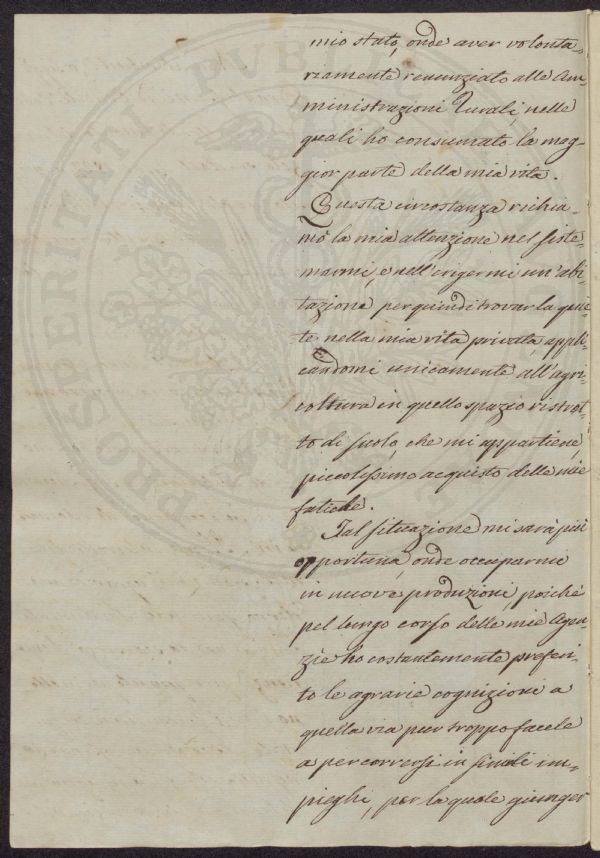 mio stato, onde aver volonta-
riamente renunziato alle Am-
ministrazioni Rurali nelle
quali ho consumato la mag-
gior parte della mia vita.
Questa circostanza richia-
mò la mia attenzione nel siste-
marmi, e nell'erigermi un'abi-
tazione per quindi trovar la quie-
te nella mia vita privata, appli-
candomi unicamente all'agri-
coltura in quello spazio ristret-
to di suolo, che mi appartiene,
piccolissimo acquisto delle mie
fatiche.
Tal situazione mi sarà più
opportuna, onde occuparmi
in nuove produzioni, poiché
pel lungo corso delle mie Agen-
zie ho costantemente preferi-
to le agrarie cognizioni a
quella via pur troppo facele
a percorrersi in simili im-
pieghi, per la quale giunger
PROSPERITATI PUBLIC